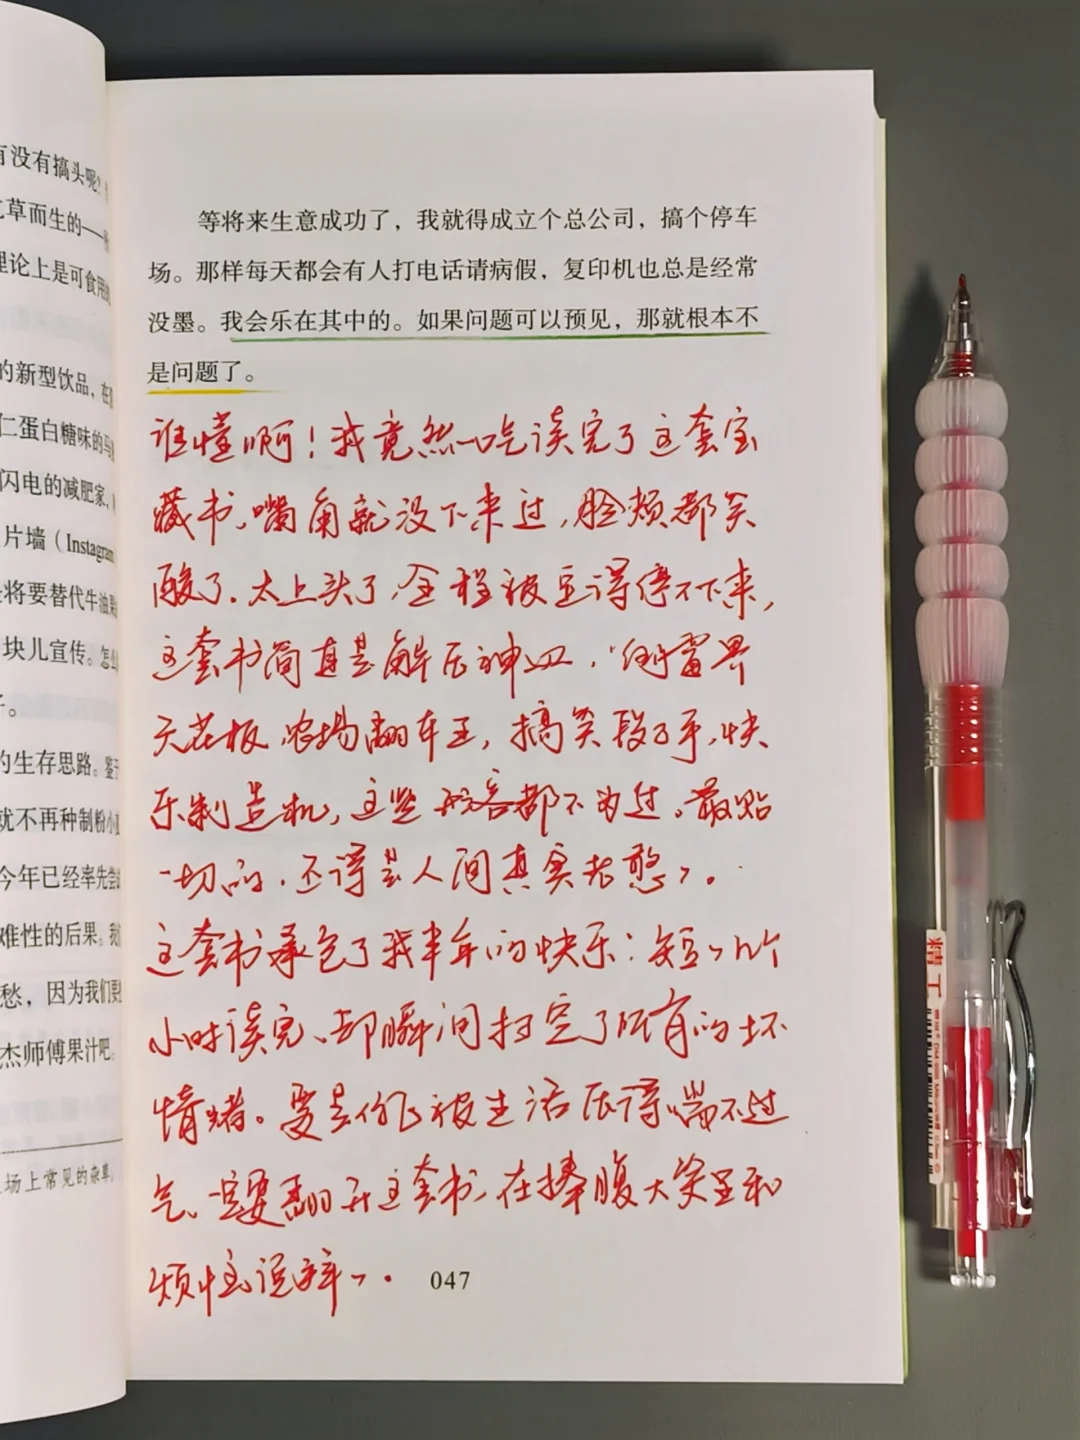 有没有搞头呢?
草而生的——
理论上是可食用
的新型饮品，在
仁蛋白糖味的马
闪电的减肥家，
片墙（Instagram
将要替代牛油果
块儿宣传。怎么
子。
的生存思路。鉴于
就不再种制粉小
今年已经率先尝
难性的后果。我
愁，因为我们要
杰师傅果汁吧。
场上常见的杂草。
等将来生意成功了，我就得成立个总公司，搞个停车
场。那样每天都会有人打电话请病假，复印机也总是经常
没墨。我会乐在其中的。如果问题可以预见，那就根本不
是问题了。
谁懂啊！我竟然一口气读完了这套宝
藏书，嘴角就没下来过，脸颊都笑
酸了。太上头了，全程被逗得停不下来，
这套书简直是解压神器，倒霉界
天花板，农场翻车王，搞笑段子手，快
乐制造机，这些形容都不为过。最贴
切的，还得是人间真实老憨憨。
这套书承包了我半年的快乐：短短几个
小时读完、却瞬间打空了所有的坏
情绪。要是你也被生活压得喘不过
气、一定要翻开这套书，在捧腹大笑里和
烦忧说拜拜。
047
精工